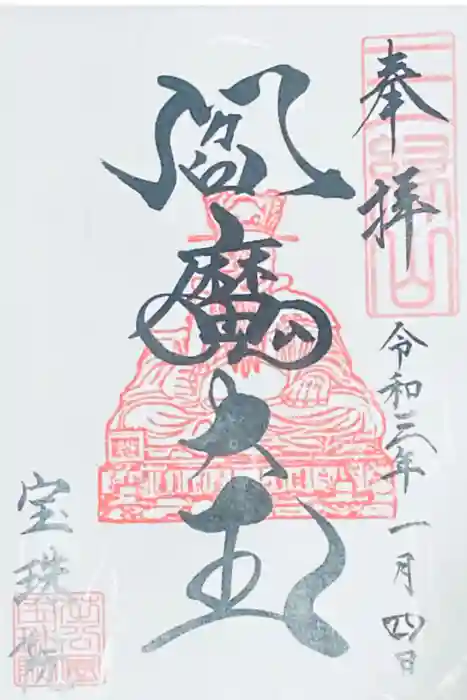 奉拝
令和三年一月四日
閻魔大王
宝珠院